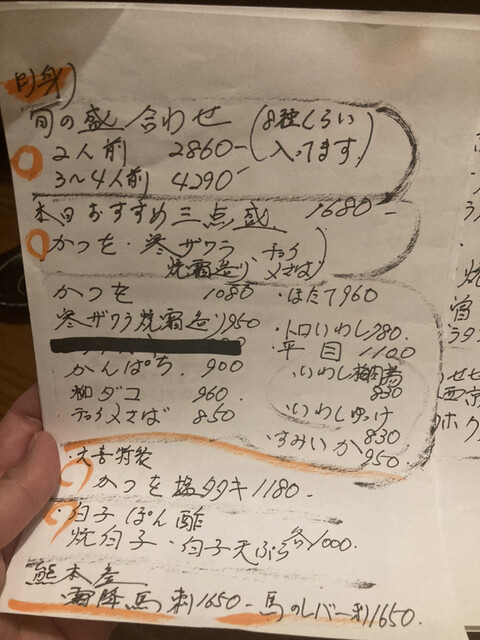 刺身)
旬の盛り合わせ (8種くらい
2人前 2860- 入ってます)
3〜4人前 4290-
本日おすすめ三点盛 1680-
かつを・寒ザワラ
焼霜造り
チョイ〆さば)
かつを 1080
・ほたて960
寒ザワラ焼霜造り950
・トロいわし780.
・平目 1100
かんぱち. 900
・いわし梅肉巻
830
柳ダコ 960.
・いわしゆっけ
830
チョイ〆さば 850
・すみいか
950.
かつを塩タタキ 1180-
・白子ぽん酢
焼白子・白子天ぷら各1000.
熊本産
霜降馬刺1650- 馬のレバー刺1650.